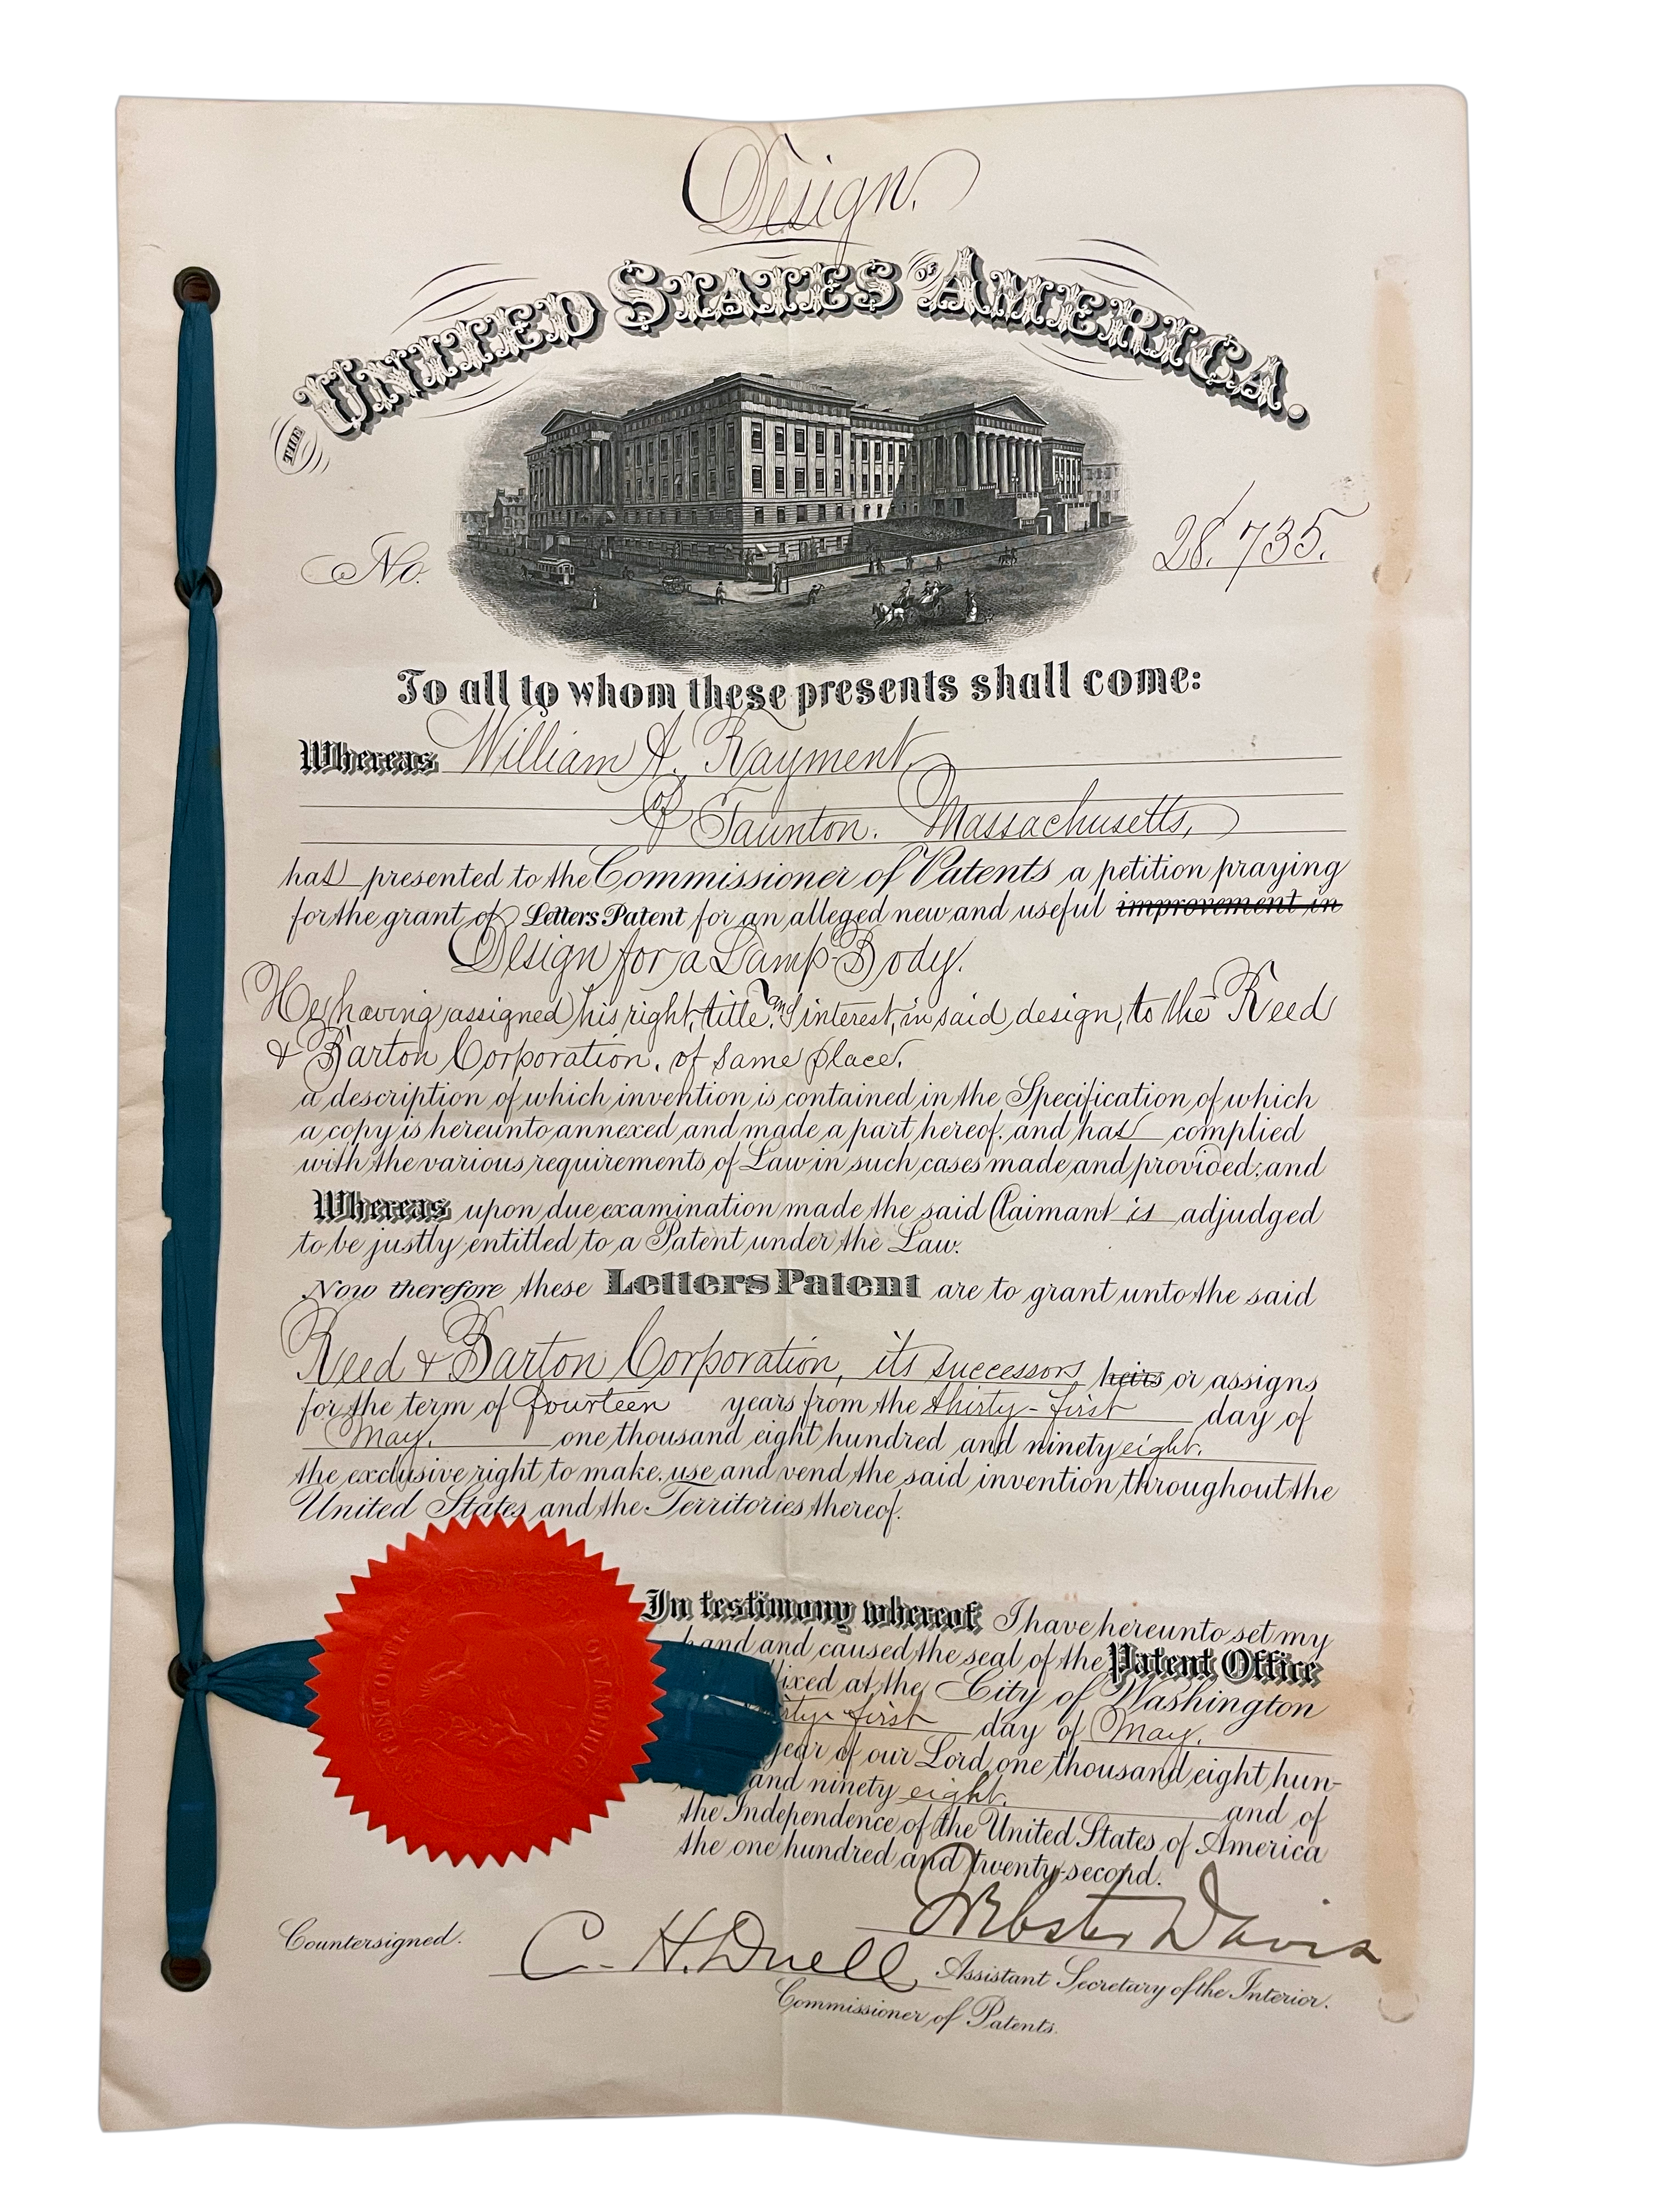 Design.
THE UNITED STATES OF AMERICA.
No. 28,735.
To all to whom these presents shall come:
Whereas William A. Rayment,
of Taunton, Massachusetts,
has presented to the Commissioner of Patents a petition praying
for the grant of Letters Patent for an alleged new and useful improvement in
Design for a Lamp-Body.
He having assigned his right, title and interest, in said design, to the Reed
& Barton Corporation, of same place,
a description of which invention is contained in the Specification of which
a copy is hereunto annexed and made a part hereof, and has complied
with the various requirements of Law in such cases made and provided; and
Whereas upon due examination made the said Claimant is adjudged
to be justly entitled to a Patent under the Law.
Now therefore these Letters Patent are to grant unto the said
Reed & Barton Corporation, its successors heirs or assigns
for the term of fourteen years from the thirty-first day of
May, one thousand eight hundred and ninety eight,
the exclusive right to make, use and vend the said invention throughout the
United States and the Territories thereof.
In testimony whereof, I have hereunto set my
hand and caused the seal of the Patent Office
ixed at the City of Washington
rty-first day of May,
year of our Lord one thousand eight hun-
and ninety eight, and of
the Independence of the United States of America
the one hundred and twenty-second.
Webster Davis
Countersigned.
C. H. Duell,
Assistant Secretary of the Interior.
Commissioner of Patents.